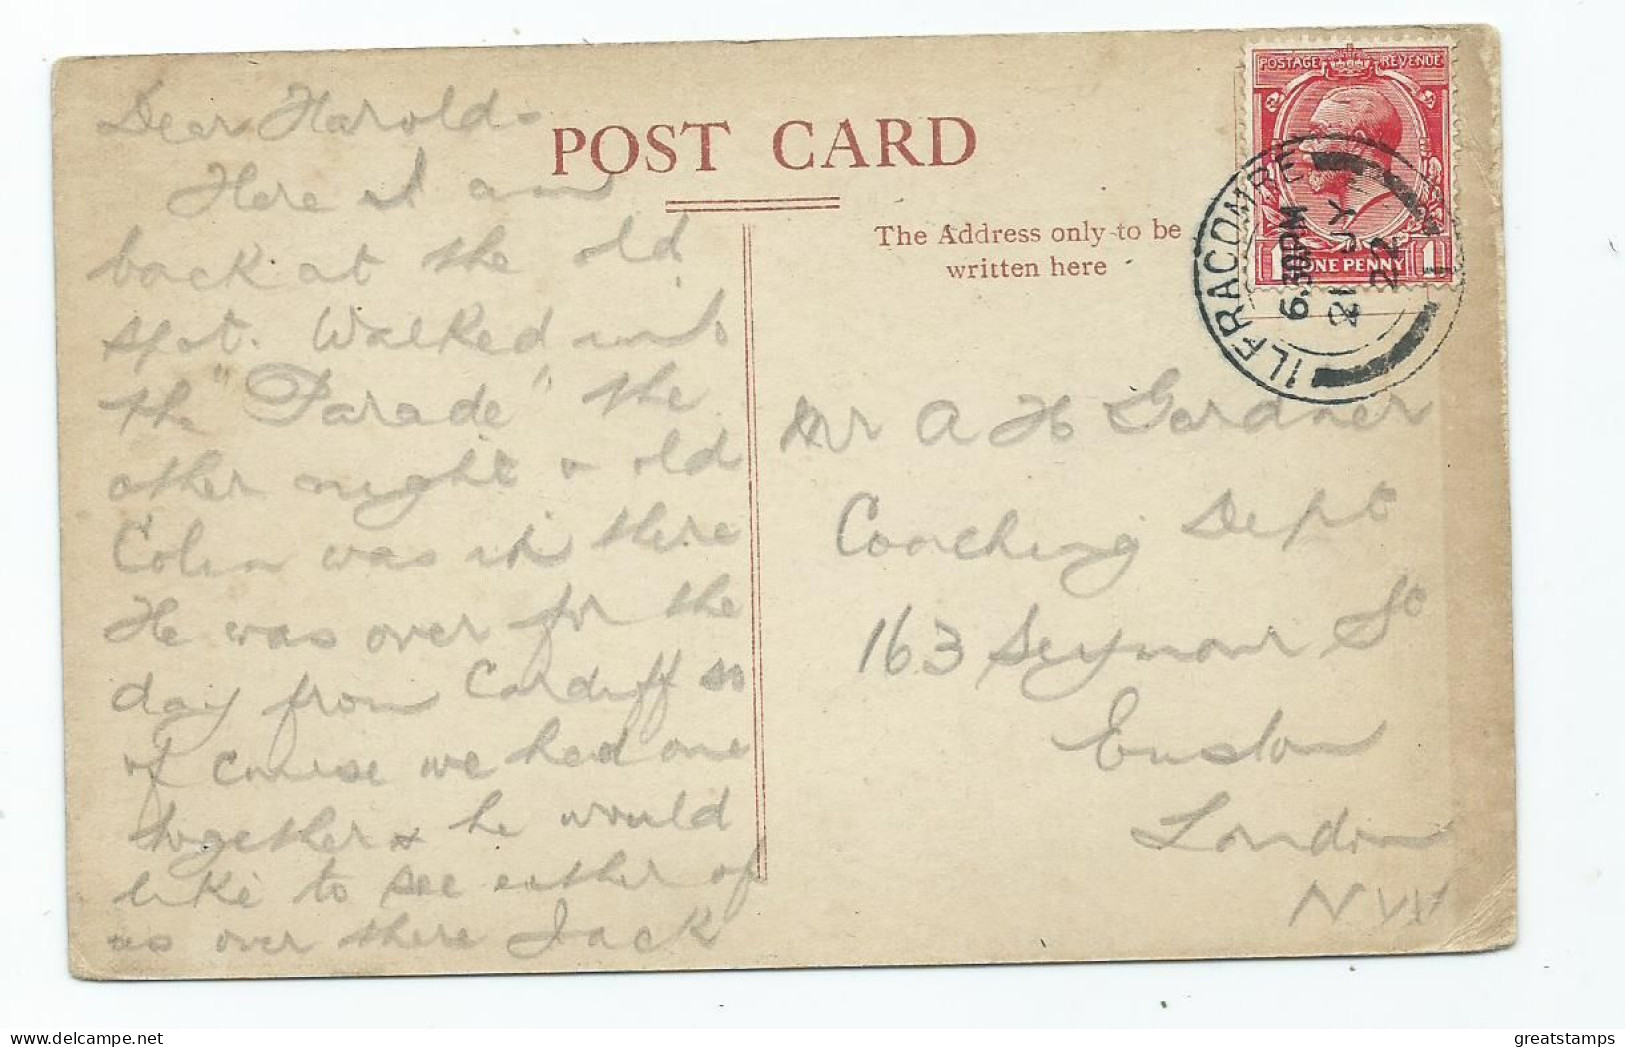 Dear Harold-
Here I am
back at the old
spot. Walked into
the "Parade" the
other night & old
Colin was in there
He was over for the
day from Cardiff so
of course we had one
together & he would
like to see either of
us over there Jack
POST CARD
The Address only to be
written here
POSTAGE REVENUE
1 ONE PENNY 1
ILFRACOMBE
6.30PM
21 JY
22
Mr A H Gardner
Coaching Dept
163 Seymour St
Euston
London
NW
greatstamps